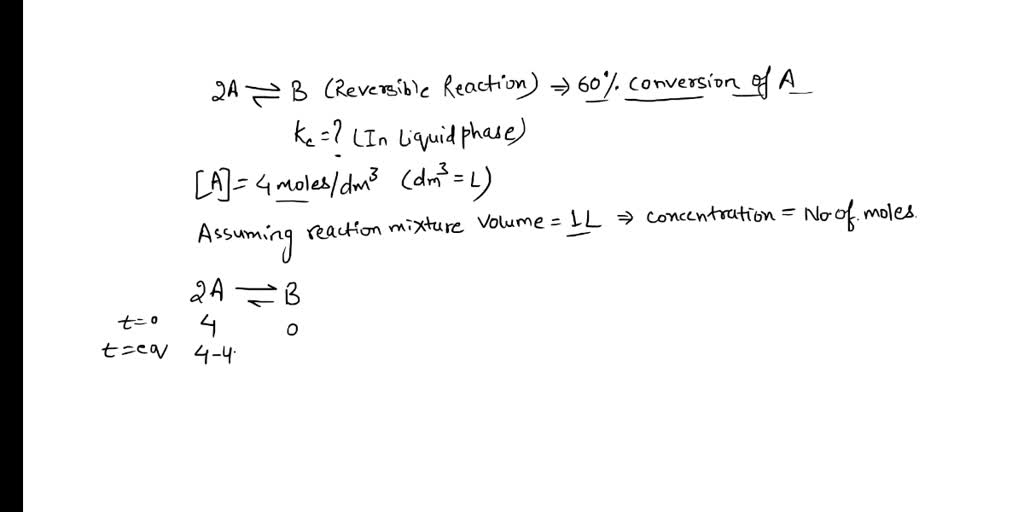 2A ⇌ B (Reversible Reaction) ⇒ 60% conversion of A
Kc = ? (In Liquid phase)
[A] = 4 moles/dm³ (dm³ = L)
Assuming reaction mixture volume = 1L ⇒ concentration = No of. moles.
2A ⇌ B
t=0 4 0
t=eq 4-4.